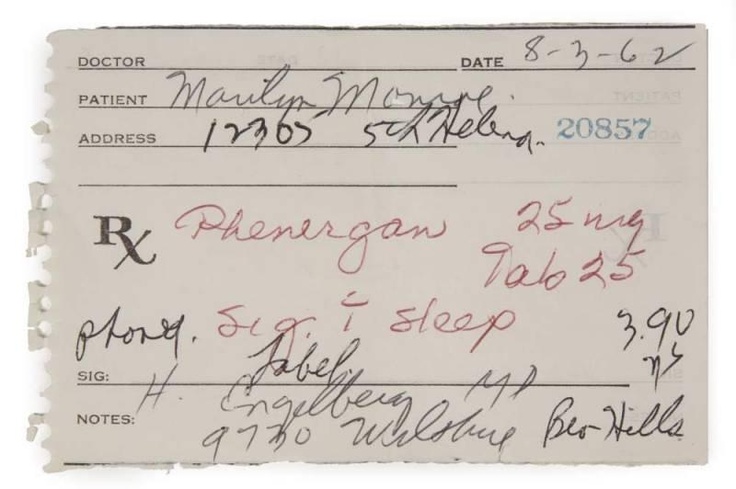 DOCTOR DATE 8-3-62
PATIENT Marilyn Monroe.
ADDRESS 12305 5th Helena. 20857
Rx Phenergan 25 mg
Tab 25
phoned. Sig. i sleep 3.90
Label
SIG:
H. Engelberg MD
NOTES: 9730 Wilshire Bev-Hills